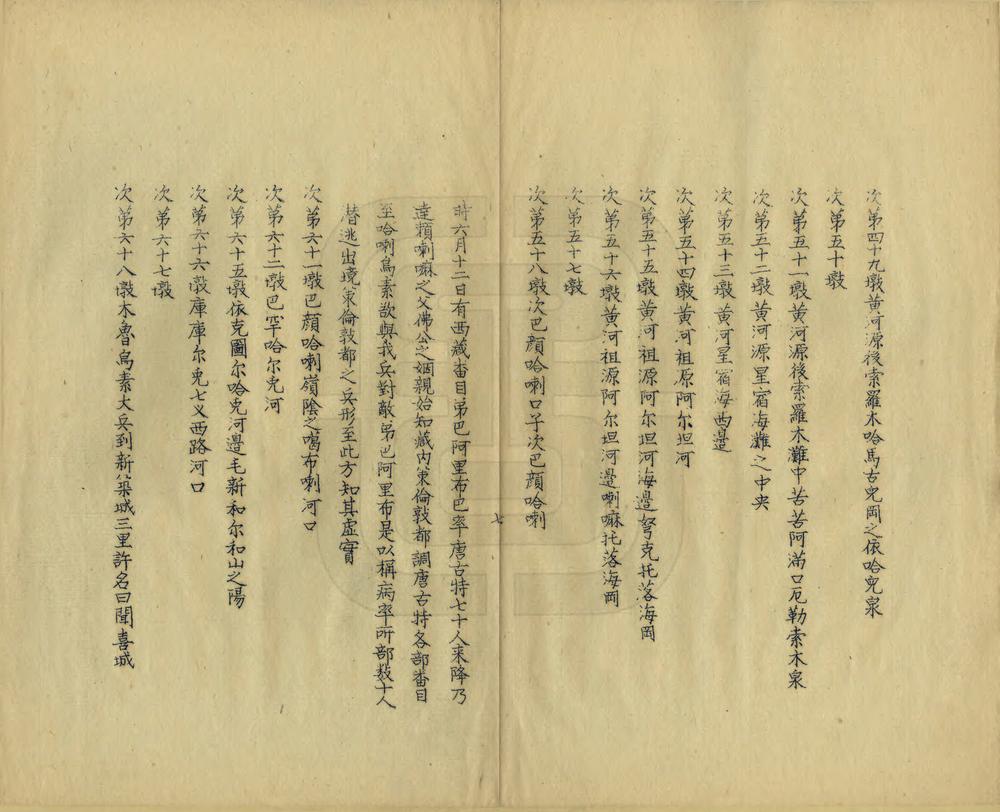 次第四十九墩黄河源後索羅木哈馬古兒岡之依哈兒泉
次第五十墩
次第五十一墩黄河源後索羅木灘中苦苦阿滿口厄勒索木泉
次第五十二墩黄河源星宿海灘之中央
次第五十三墩黄河星宿海西邉
次第五十四墩黄河祖原阿尔坦河
次第五十五墩黄河祖源阿尔坦河海邉弩克托落海岡
次第五十六墩黄河祖源阿尔坦河邉喇嘛托落海岡
次第五十七墩
次第五十八墩次巴顔哈喇口子次巴顔哈喇
七
時六月十二日有西藏畨目第巴阿里布巴率唐古特七十人来降乃
達頼喇嘛之父佛公之姻親始知藏内策倫敦都調唐古特各部畨目
至哈喇烏素欲與我兵對敵第巴阿里布是以稱病率所部数十人
潜逃出境策倫敦都之兵形至此方知其虚實
次第六十一墩巴顔哈喇嶺陰之噶布喇河口
次第六十二墩巴罕哈尔兎河
次第六十五墩依克圖尔哈兎河邉毛新和尔和山之陽
次第六十六墩庫庫尔兎七义西路河口
次第六十七墩
次第六十八墩木魯烏素大兵到新築城三里許名曰聞喜城